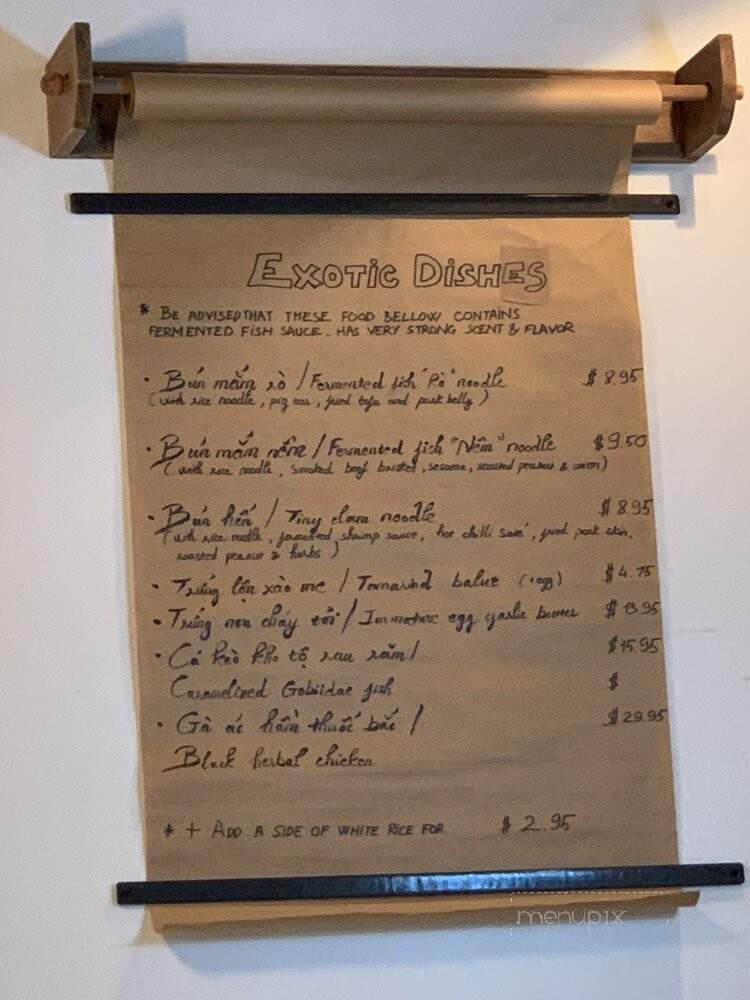 EXOTIC DISHES
* BE ADVISED THAT THESE FOOD BELLOW CONTAINS
FERMENTED FISH SAUCE. HAS VERY STRONG SCENT & FLAVOR
• Bún mắm rò / Fermented fish "Rò" noodle $ 8.95
(with rice noodle, pig ear, fried tofu and pork belly)
• Bún mắm nêm / Fermented fish "Nêm" noodle $ 9.50
(with rice noodle, smoked beef brisket, sesame, roasted peanut & onion)
• Bún hến / Tiny clam noodle $ 8.95
(with rice noodle, fermented shrimp sauce, hot chilli saté, fried pork skin,
roasted peanut & herbs)
• Trứng lộn xào me / Tamarind balut (1 egg) $ 4.75
• Trứng non cháy tỏi / Immature egg garlic butter $ 13.95
• Cá kèo kho tộ rau răm / $ 15.95
Caramelized Gobiidae fish $
• Gà ác hầm thuốc bắc / $ 29.95
Black herbal chicken
* + ADD A SIDE OF WHITE RICE FOR $ 2.95
menupix